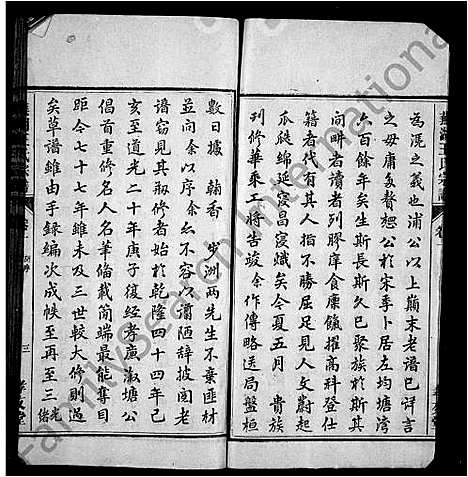 為混之義也浦公以上顛末老譜巳詳言
之毋庸多贅愬公於宋季卜居左均塘灣
六百餘年矣生斯長斯久巳聚族於斯其
間畊者讀者列膠庠食廩餼擢高科登仕
籍者代有其人指不勝屈足見人文蔚起
瓜瓞綿延寖昌寖熾矣今夏五月 貴族
刋修華乘工將告竣余作傳略送局盤桓
數日據 翰香 步洲兩先生不棄匪材
並向余以序余亦不容以谫陋辞披閱老
譜窃見其刱修者始於乾隆四十四年己
亥至道光二十年庚子復經孝廣淑塘公
倡首重修名人名筆備載简端最能奪目
距今七十七年雖未及三世較大修則過
矣草譜雖由手録編次成帙至再至三光緒
三
FamilySearch International